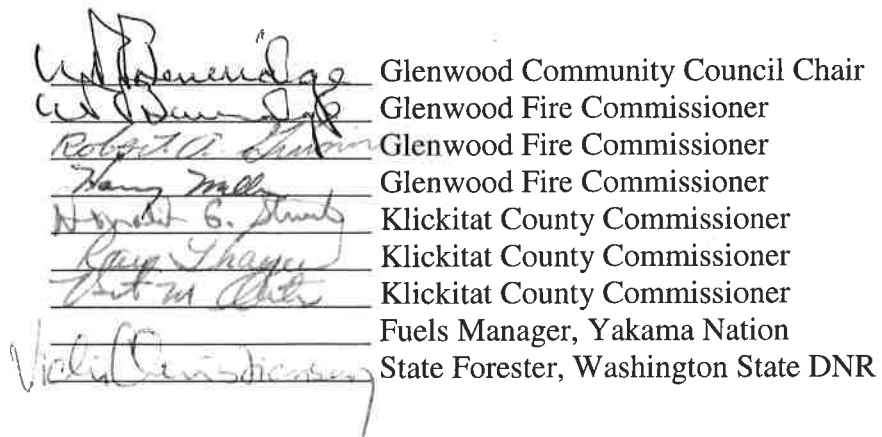 Glenwood Community Council Chair
Glenwood Fire Commissioner
Robert A. Glenwood Fire Commissioner
Glenwood Fire Commissioner
Klickitat County Commissioner
Ray Thayer Klickitat County Commissioner
Klickitat County Commissioner
Fuels Manager, Yakama Nation
Vicki Christiansen State Forester, Washington State DNR